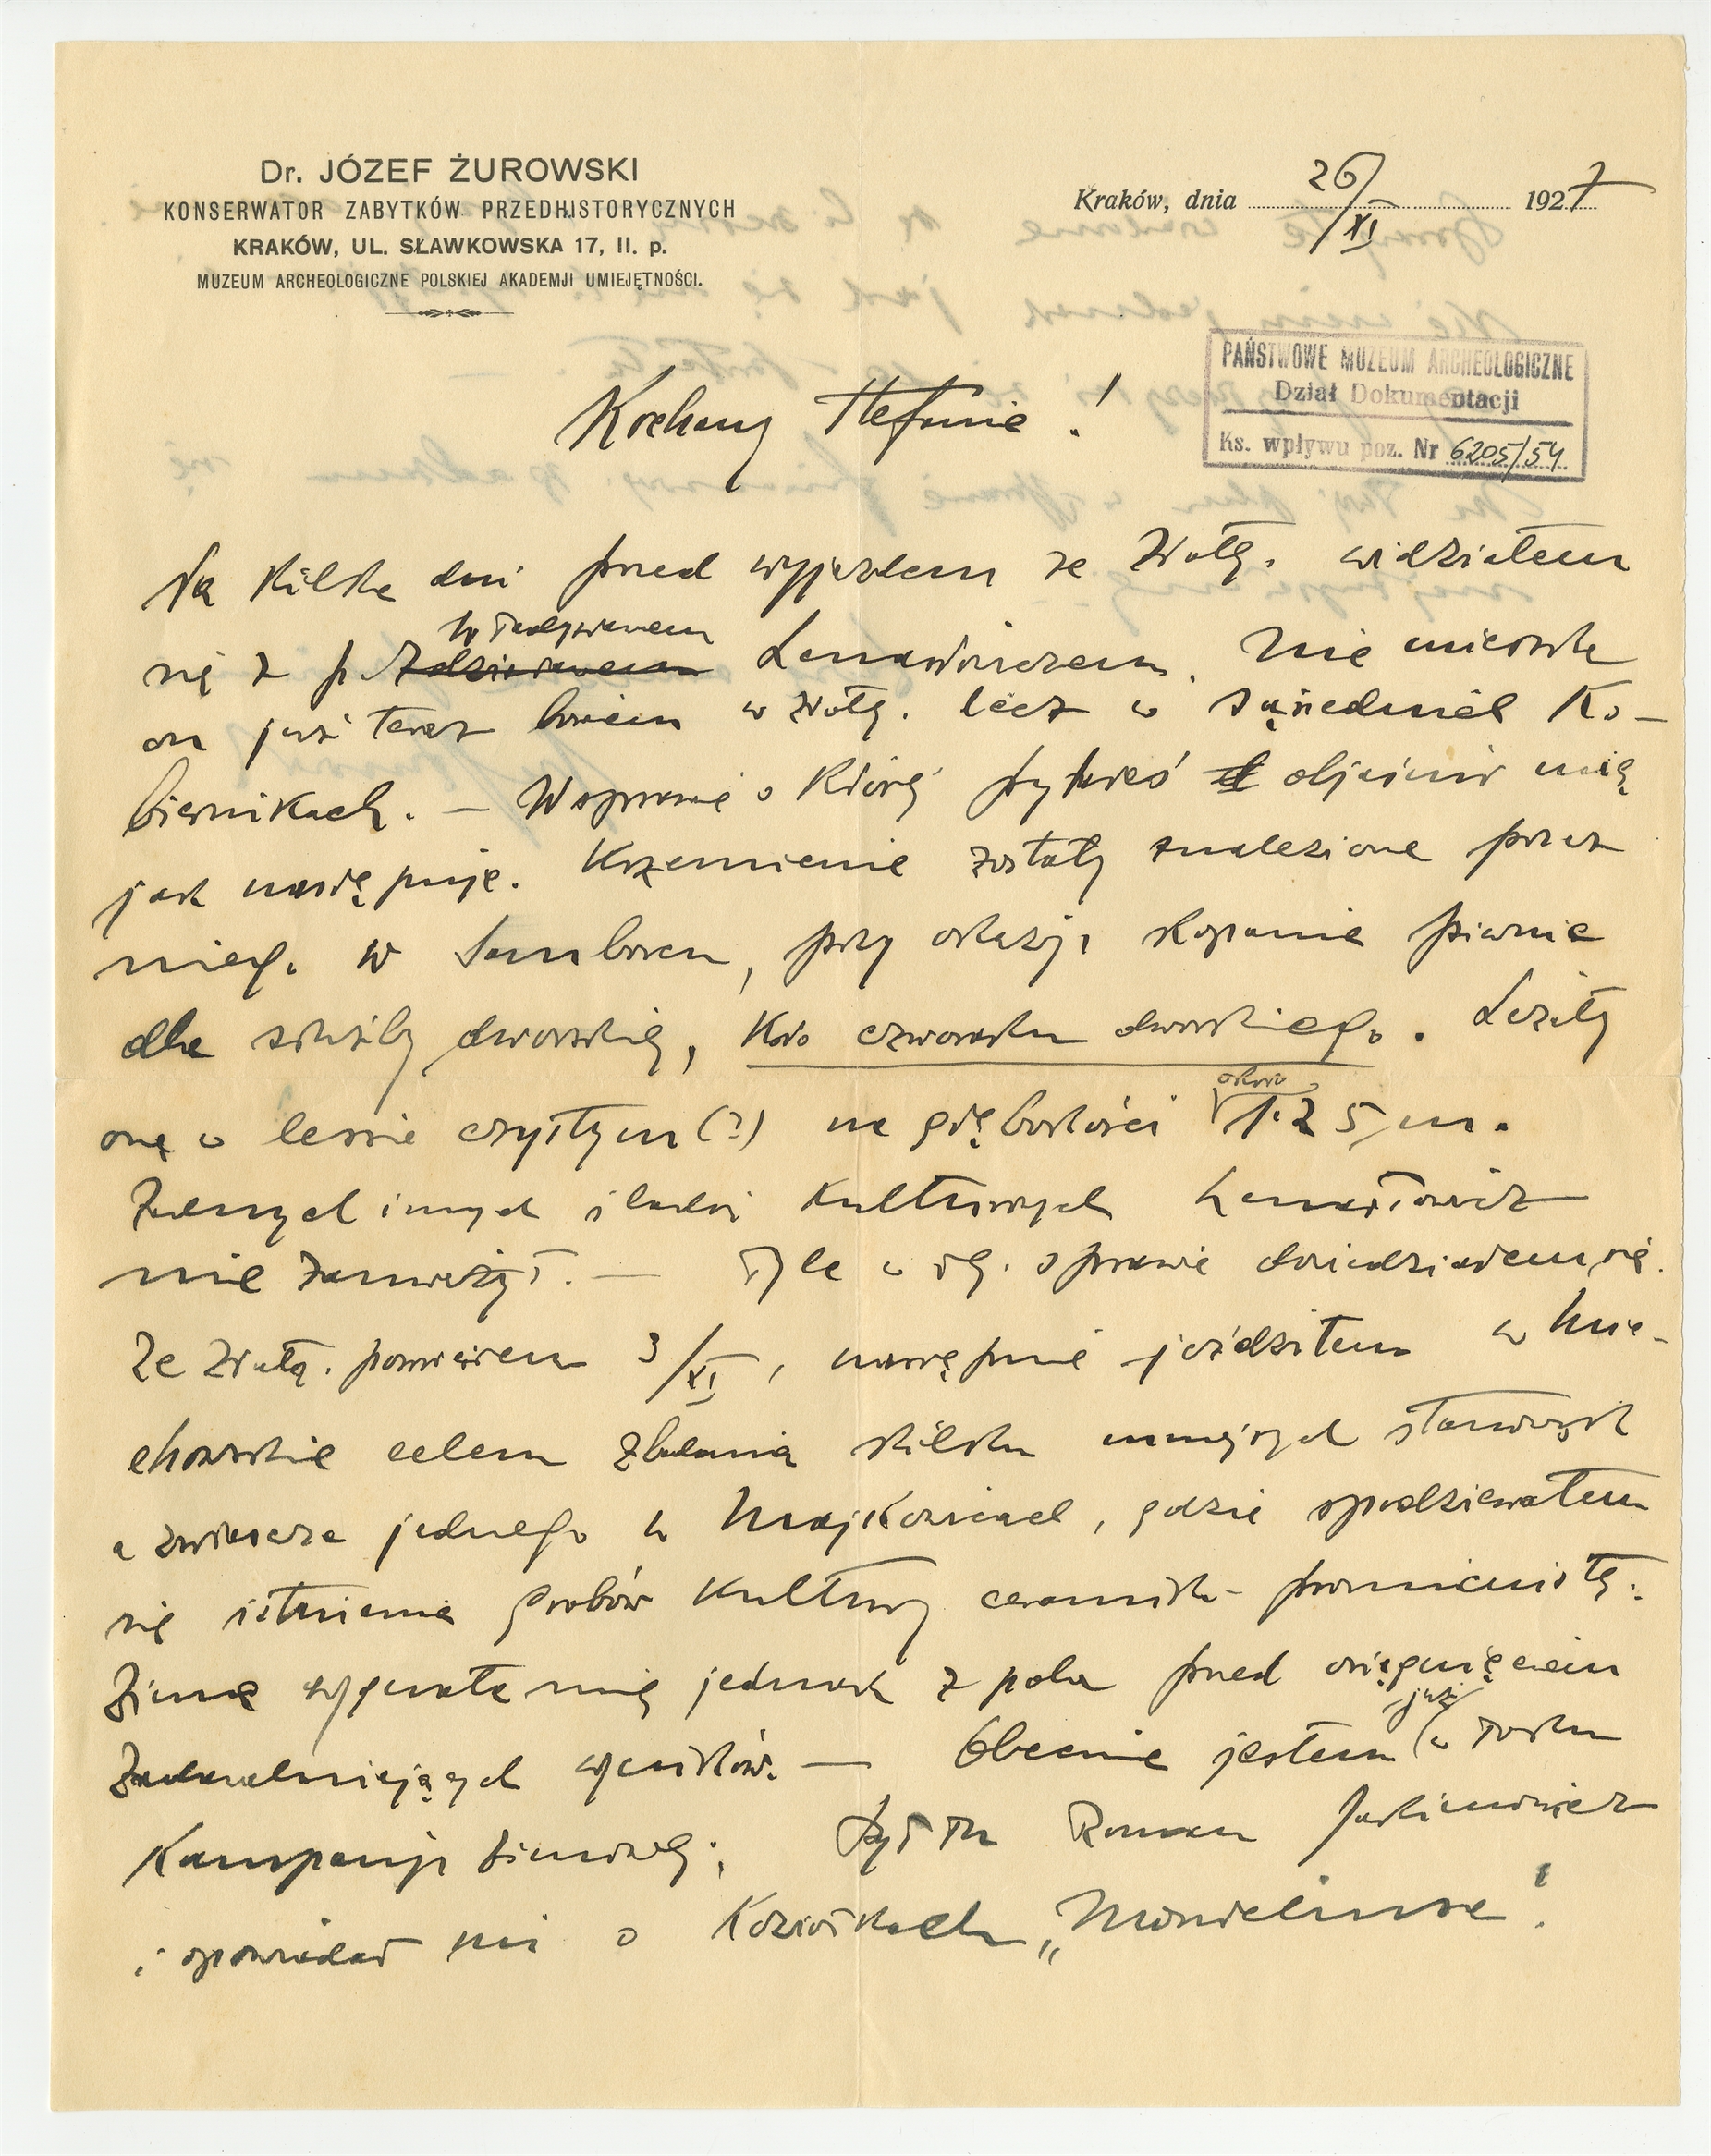 Dr. JÓZEF ŻUROWSKI
KONSERWATOR ZABYTKÓW PRZEDHISTORYCZNYCH
KRAKÓW, UL. SŁAWKOWSKA 17, II. p.
MUZEUM ARCHEOLOGICZNE POLSKIEJ AKADEMJI UMIEJĘTNOŚCI.
Kraków, dnia 26/XI 1927
PAŃSTWOWE MUZEUM ARCHEOLOGICZNE
Dział Dokumentacji
Ks. wpływu poz. Nr 6205/54
Kochany Stefanie!
Na kilka dni przed wyjazdem ze Złotej widziałem
się z p. Władysławem Lenartowiczem. Nie mieszka
on już teraz bowiem w Złotej lecz w sąsiednich Ko-
biernikach. — W sprawie o którą pytałeś objaśnił mię
jak następuje. Krzemienie zostały znalezione przez
niego w Samborcu, przy okazji kopania piwnic
dla służby dworskiej, koło czworaku dworskiego. Leżały
one w lessie czystym (?) na głębokości około 1·25 m.
Żadnych innych śladów kulturowych Lenartowicz
nie zauważył. — Tyle w tej sprawie dowiedziałem się.
Ze Złotej powróciłem 3/XI, następnie jeździłem w Mie-
chowskie celem zbadania kilku mniejszych stanowisk
a zwłaszcza jednego w Majkowicach, gdzie spodziewałem
się istnienia grobów kultury ceramiki promienistej.
Zima wygnała mię jednak z pola przed osiągnięciem
zadawalniających wyników. — Obecnie jestem już w toku
kampanji zimowej. Był tu Roman Jakimowicz
i opowiadał mi o Koziołkach „Monteliusa”!